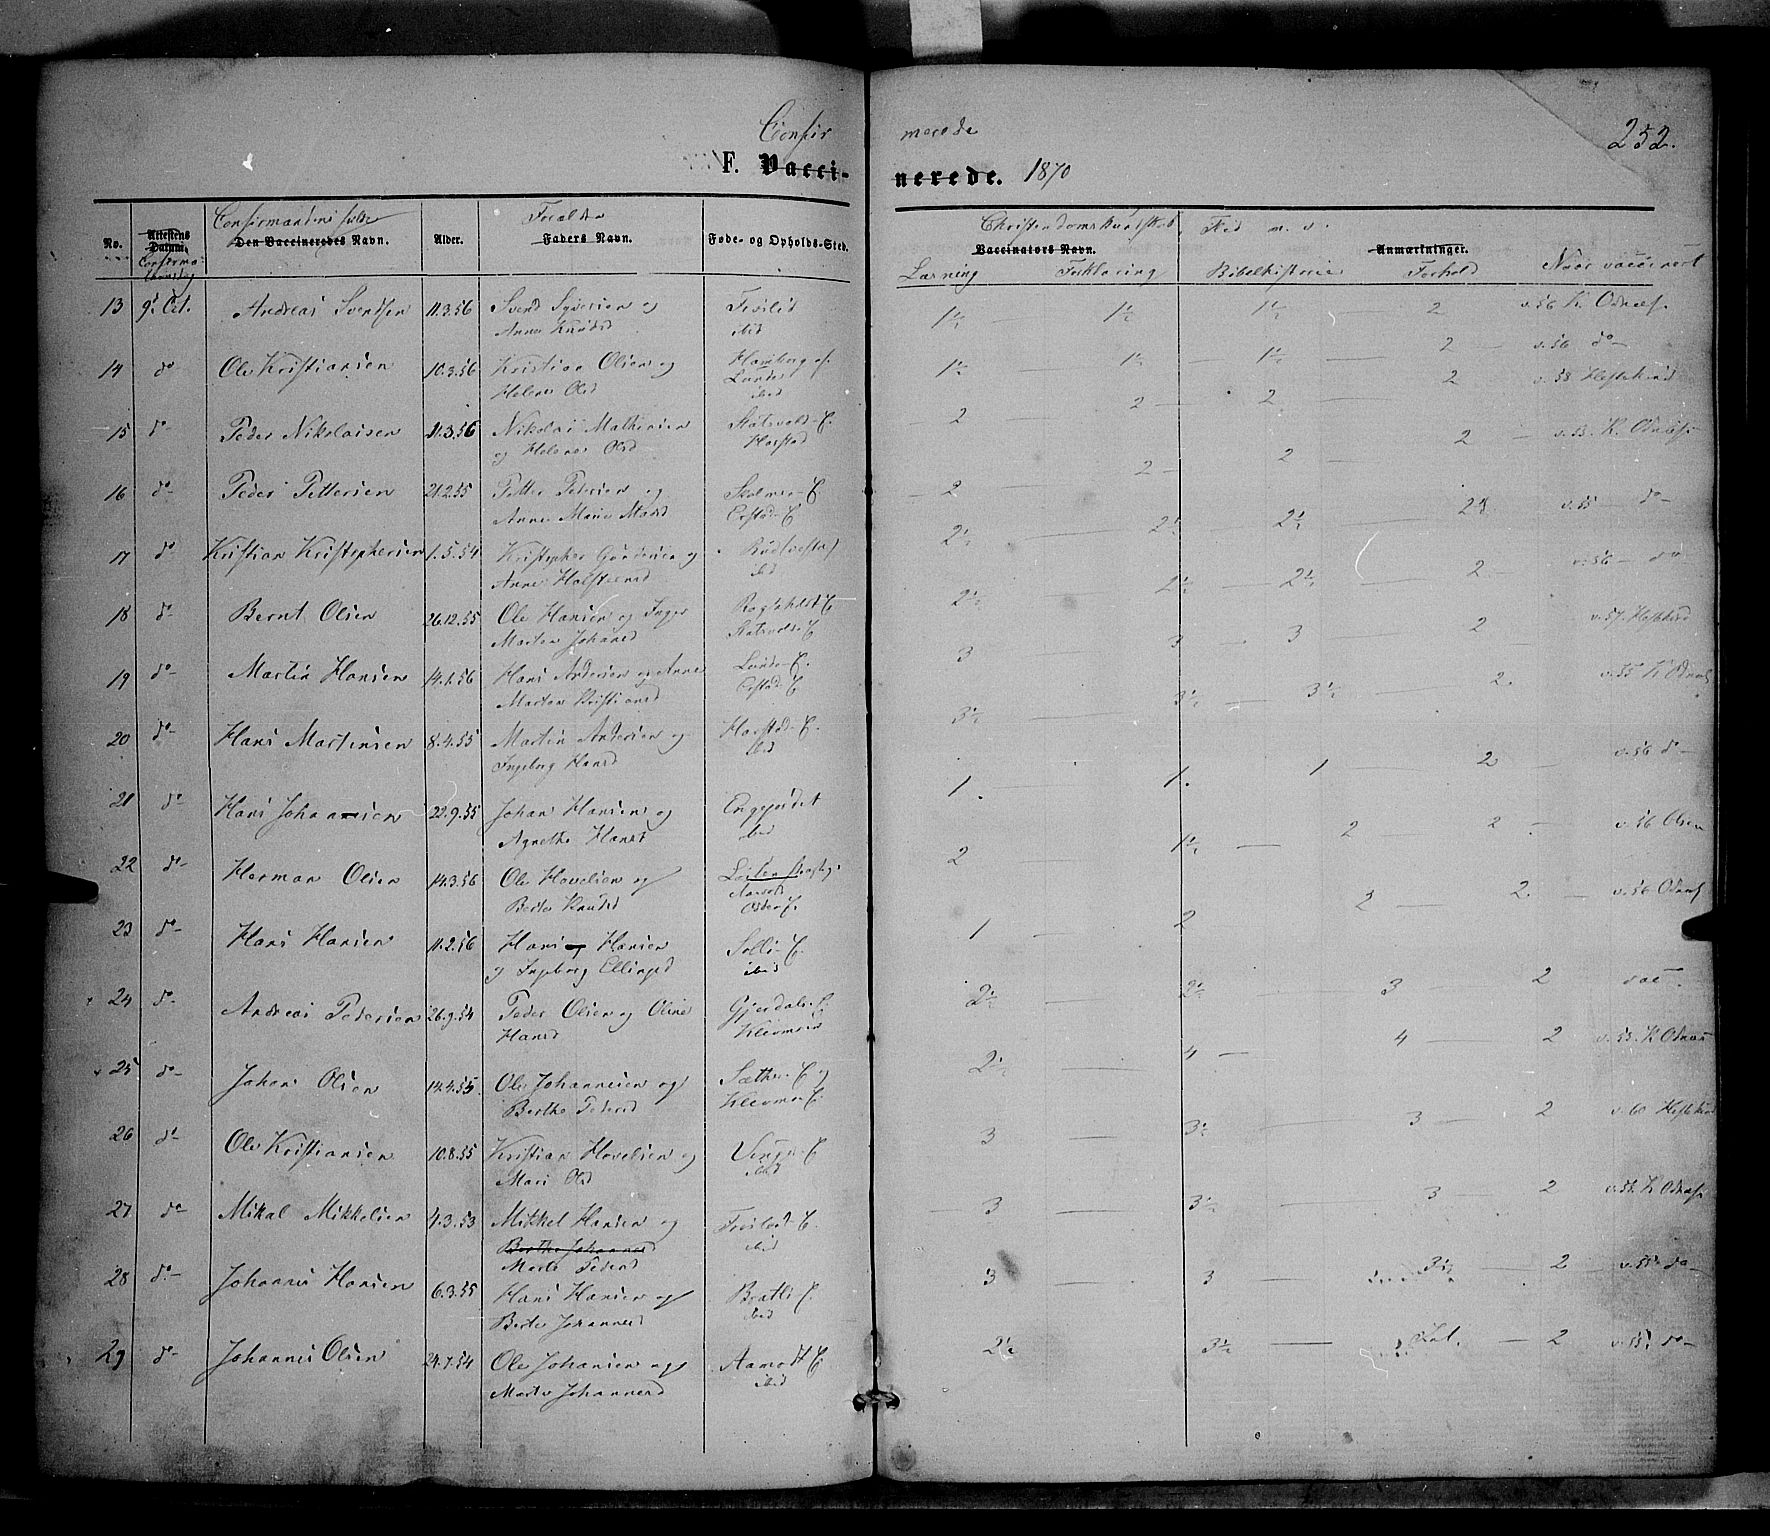 Confir merede
252.
F. Vacci- nerede. 1870
Confirmandens fulde Forældre Christendomskundskab, Flid m. v.
No. Attestens Datum. Den Vaccineredes Navn. Alder. Faders Navn. Føde- og Opholds-Sted. Vaccinators Navn. Anmærkninger.
Confirma-
tionsdag
Læsning Forklaring Bibelhistorie Forhold Naar vaccinert
13 9d Oct. Andreas Svendsen 11.3.56 Svend Syversen og 1½ 1½ 1½ 2 v. 56 K. Odnæs
Anne Knudsd ibid
14 do Ole Kristiansen 10.3.56 Kristian Olsen og 1½ 1½ 1½ 2 v. 56 do
Helene Olsd Lande
ibid
15 do Peder Nikolaisen 11.3.56 Nikolai Mathiesen 2 2 2 2 v. 58
og Helene Olsd Harstad
16 do Peder Pettersen 21.2.55 Petter Pedersen og 2 2 2 2 v. 53. K. Odnæs
Anne Marie Madsd
17 do Kristian Kristophersen 1.5.54 Kristopher Gundersen og 2½ 2½ 2½ v. 55 do
Anne Halsteensd ibid
18 do Bernt Olsen 26.12.55 Ole Hansen og Inger 2½ 2½ 2½ 2 v. 56 do
Marten Johansd
19 do Martin Hansen 14.1.56 Hans Andersen og Anne Lande E. 3 3 3 2 v. 57.
Marten Kristiansd
20 do Hans Martinsen 8.4.55 Martin Andersen og Harstad E. 3½ 3½ 3½ 2. v. 55 K Odnæs
Ingeborg Hansd ibid
21 do Hans Johannesen 22.9.55 Johan Hansen og Engejordet 1. 1. 1 2 v. 56 do
Agnethe Hansd ibid
22 do Herman Olsen 14.3.56 Ole Hovelsen og 2 1½ 2 2 v. 56 Olsen
Berte Knudsd
23 do Hans Hansen 11.2.56 Hans og Hansen Solli E. 1 2 2 2. v. 56 Odnæs
og Ingeborg Ellingsd ibid
24 do Andreas Pedersen 26.9.54 Peder Olsen og Oline Gjerdal E. 2½ 2½ 3 2
Hansd Klevmoen
25 do Johan Olsen 14.4.55 Ole Johannesen og Sæther E og 2½ 4 4 2 v. 55. K Odnæs
Berthe Pedersd Klevmoe E.
26 do Ole Kristiansen 10.8.55 Kristian Hovelsen og 3 3½ 3 2 v. 60
Mari Olsd ibid
27 do Mikal Mikkelsen 4.3.53 Mikkel Hansen og 3 3½ 3 2 K Odnæs
Berthe Johannesd ibid
Marte Pedersd
28 do Johannes Hansen 6.3.55 Hans Hansen og 3 3 3½ 2 v. 55 do
Berte Johannesd ibid
29 do Johannes Olsen 24.7.54 Ole Johansen og Aamodt E 2½ 3½ 2 v. 55 do
Marte Johannesd ibid